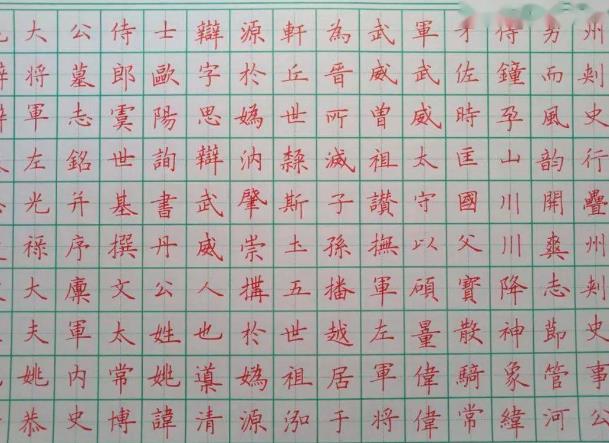 大將軍左光祿大夫姚恭
公墓志銘并序廩軍內史
侍郎虞世基撰文太常博
士歐陽詢書丹公姓姚諱
辯字思辯武威人也導清
源於媯汭肇崇搆於媯源
軒丘世隸斯土五世祖泓
為晉所滅子孫播越居于
武威曾祖讃撫軍左軍將
軍武威太守以碩量偉偉
才佐時匡國父寶散騎常
侍鐘孕山川川降神象緯
而風韵開爽志節管河
州刾史行疊州刾史事公